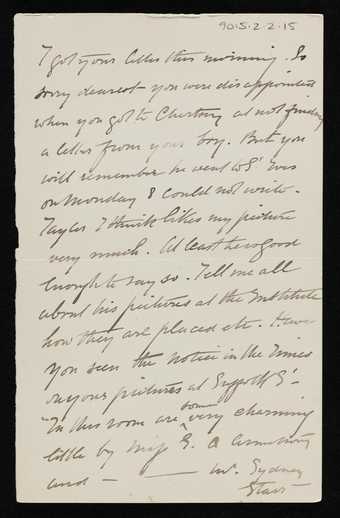 90.5.2.2.15
I got your letter this morning. So
sorry dearest - you were disappointed
when you got to Chertsey at not finding
a letter from your boy. But you
will remember he went to S' Ives
on Monday & could not write -
Taylor I think likes my picture
very much. At least he is good
enough to say so. Tell me all
about his pictures at the Institute
how they are placed etc. Have
you seen the notice in the Times
on your pictures at Suffolk S' -
"In this room are some very charming
little by Miss E. A Armstrong
and - Mr. Sydney
Starr